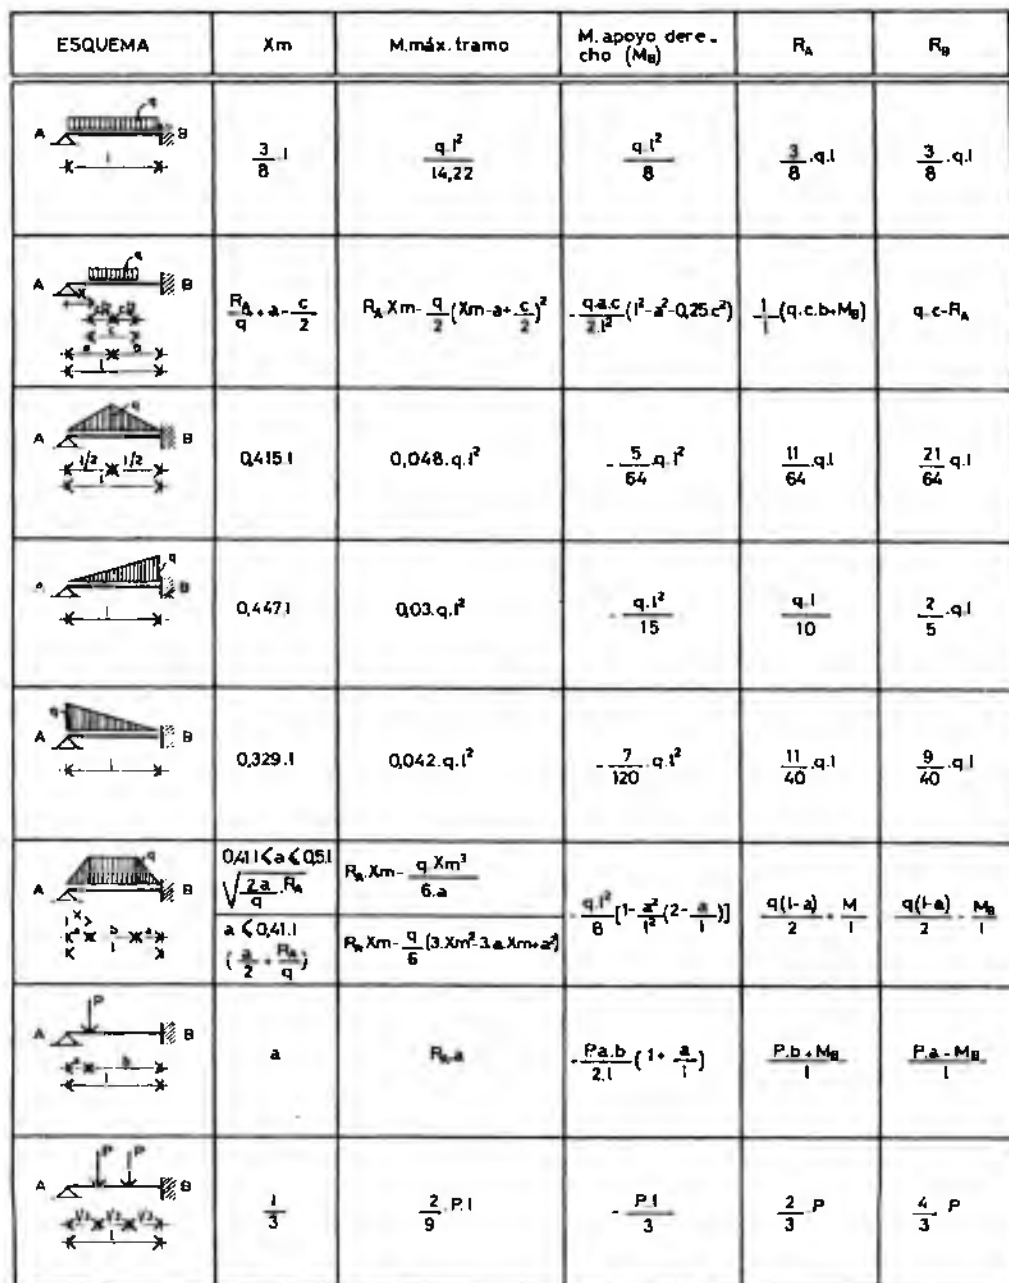 ESQUEMA	Xm	M.máx.tramo	M. apoyo dere-cho (MB)	RA	RB
A q B l	3/8 .l	q.l²/14,22	q.l²/8	3/8 .q.l	3/8 .q.l
A q B X c/2 c/2 c a b l	RA/q + a - c/2	RA Xm - q/2 (Xm-a+ c/2)²	- q.a.c/2.l² (l²-a²-0,25c²)	1/l (q.c.b+MB)	q.c-RA
A q B l/2 l/2 l	0,415.l	0,048.q.l²	- 5/64 .q.l²	11/64 .q.l	21/64 q.l
q B l	0,447.l	0,03.q.l²	- q.l²/15	q.l/10	2/5 .q.l
A q B l	0,329.l	0,042.q.l²	- 7/120 .q.l²	11/40 .q.l	9/40 .q.l
A q B X a b a l	0,41 l ⩽ a ⩽ 0,5.l √(2a/q .RA)	RA.Xm - q.Xm³/6.a	- q.l²/8 [1- a²/l² (2- a/l)]	q(l-a)/2 + M/l	q(l-a)/2 - MB/l
a ⩽ 0,41.l ( a/2 + RA/q )	RA Xm - q/6 (3.Xm²-3.a.Xm+a²)
A P B a b l	a	RA.a	- P.a.b/2.l (1+ a/l)	P.b+MB/l	P.a-MB/l
A P P B l/3 l/3 l/3 l	l/3	2/9 .P.l	- P.l/3	2/3 .P	4/3 .P